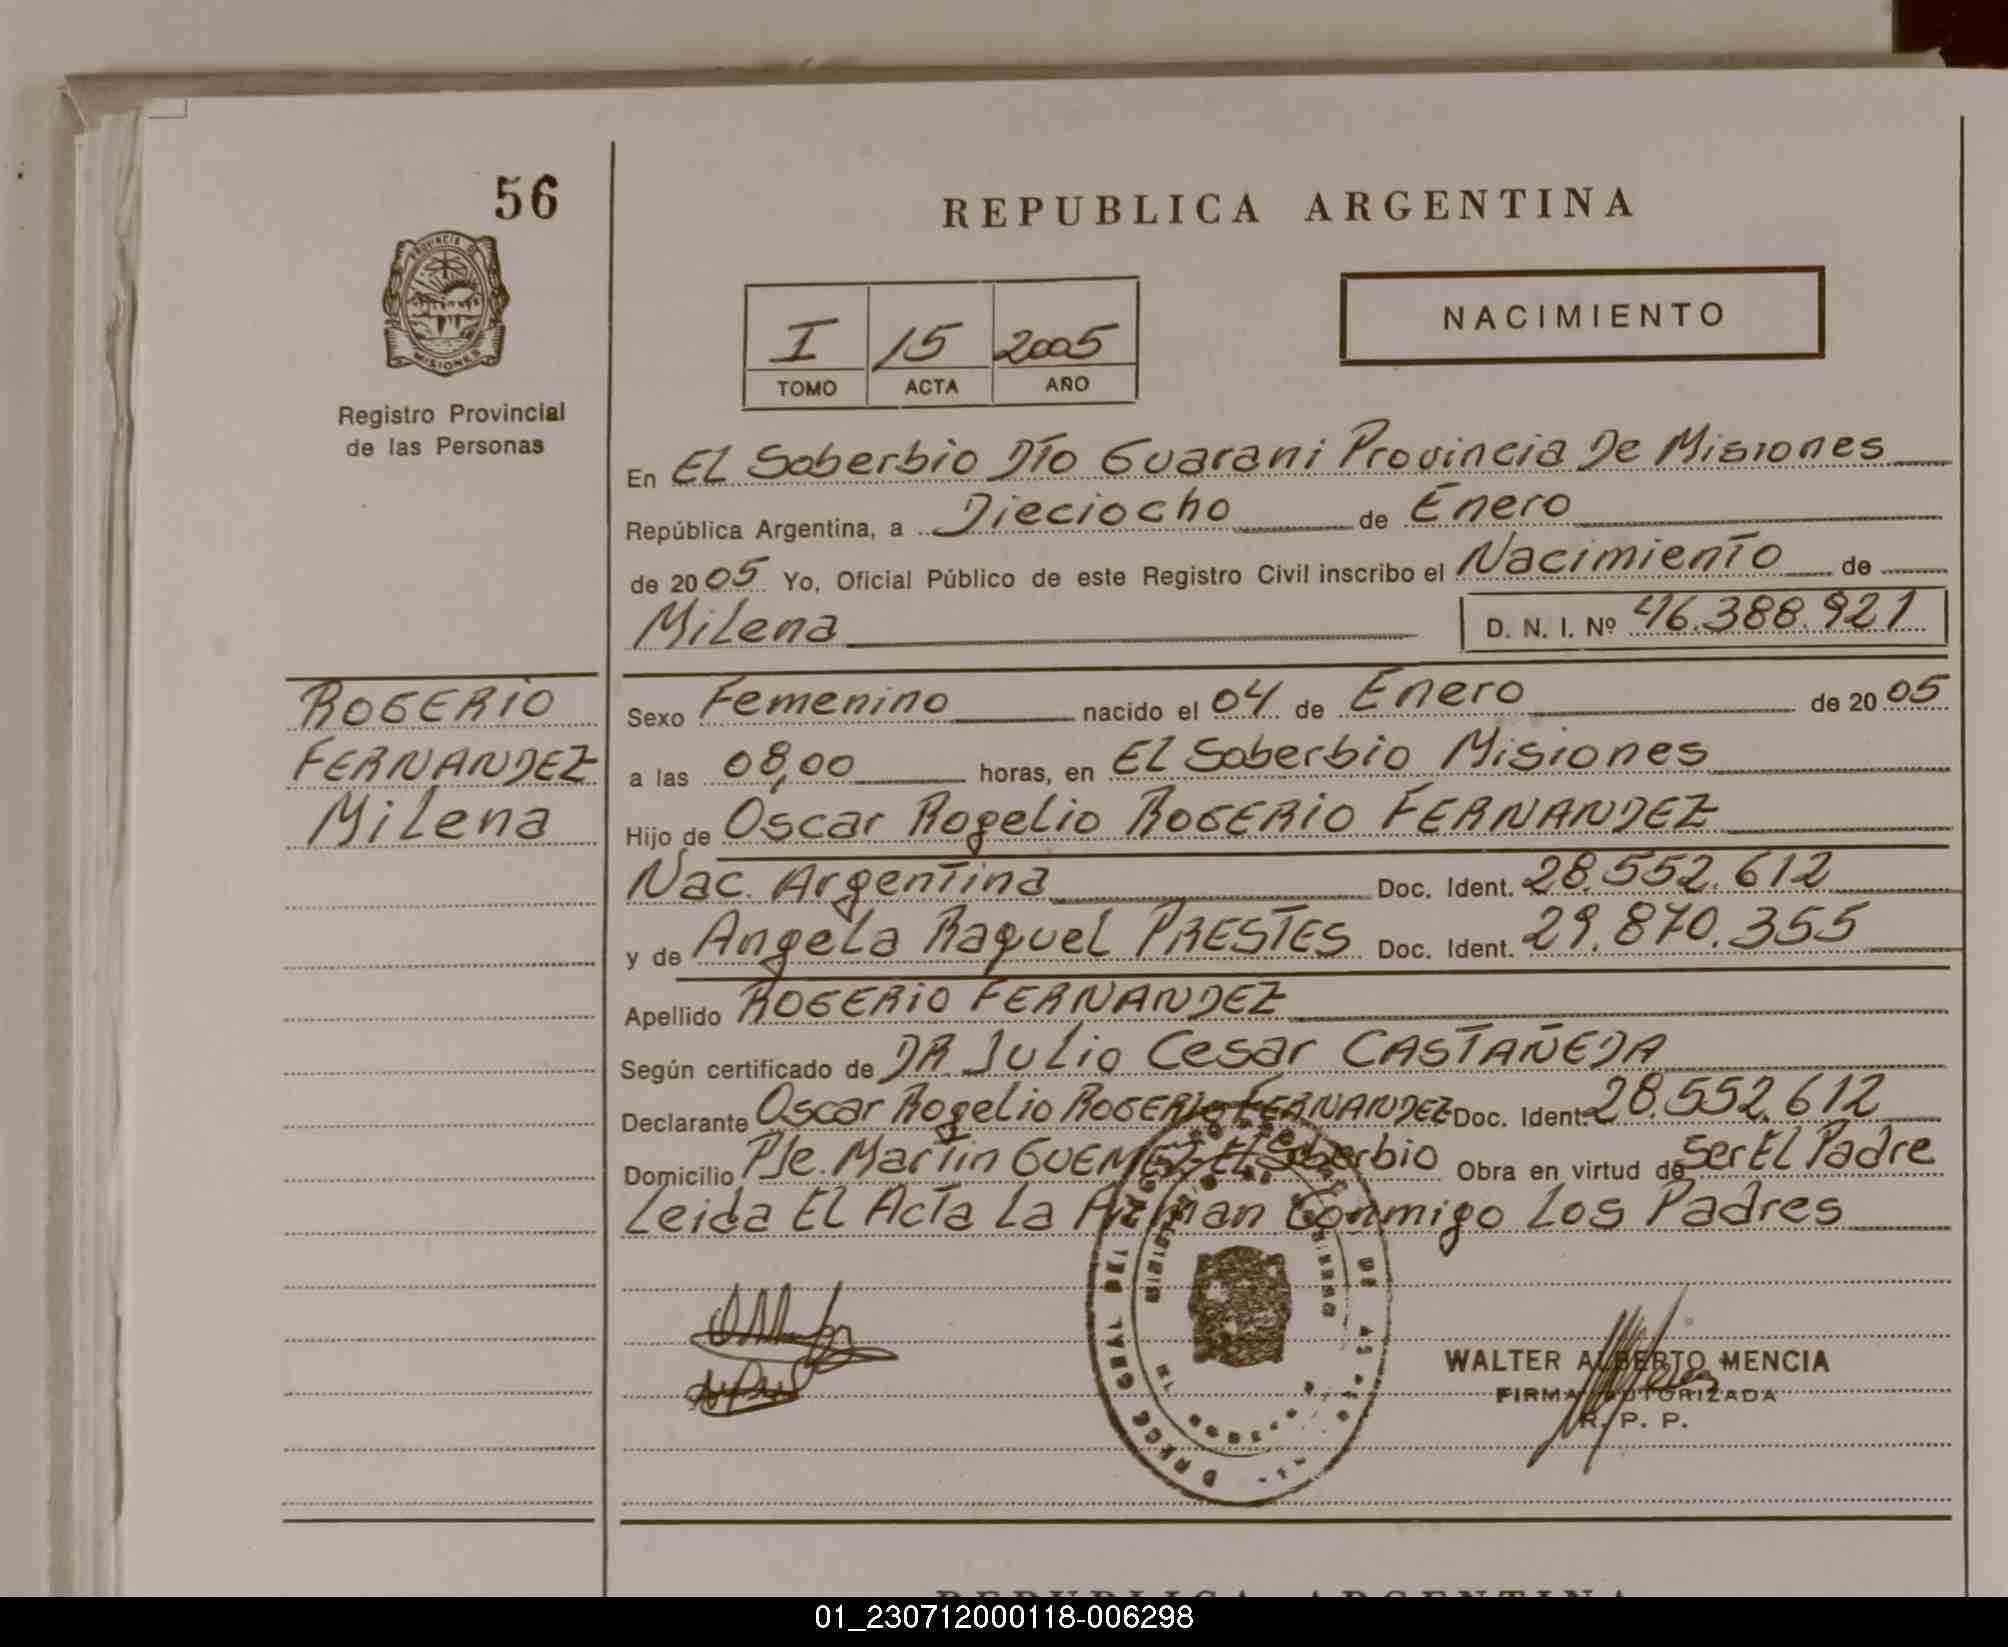 56
REPUBLICA ARGENTINA
PROVINCIA DE
MISIONES
Registro Provincial
de las Personas
NACIMIENTO
I 15 2005
TOMO ACTA AÑO
En EL Soberbio DTo Guarani Provincia De Misiones
República Argentina, a Dieciocho de Enero
de 2005 Yo, Oficial Público de este Registro Civil inscribo el Nacimiento de
Milena D. N. I. Nº 46.388.921
ROGERIO
FERNANDEZ
Milena
Sexo Femenino nacido el 04 de Enero de 2005
a las 08,00 horas, en EL Soberbio Misiones
Hijo de Oscar Rogelio ROGERIO FERNANDEZ
Nac. Argentina Doc. Ident. 28.552.612
y de Angela Raquel PRESTES Doc. Ident. 29.870.355
Apellido ROGERIO FERNANDEZ
Según certificado de DR Julio Cesar CASTAÑEDA
Declarante Oscar Rogelio ROGERIO FERNANDEZ Doc. Ident. 28.552.612
Domicilio Pje. Martin GUEMEZ El Soberbio Obra en virtud de Ser El Padre
Leida EL Acta La Firman Conmigo Los Padres
WALTER ALBERTO MENCIA
FIRMA AUTORIZADA
R. P. P.
REPUBLICA ARGENTINA
01_230712000118-006298